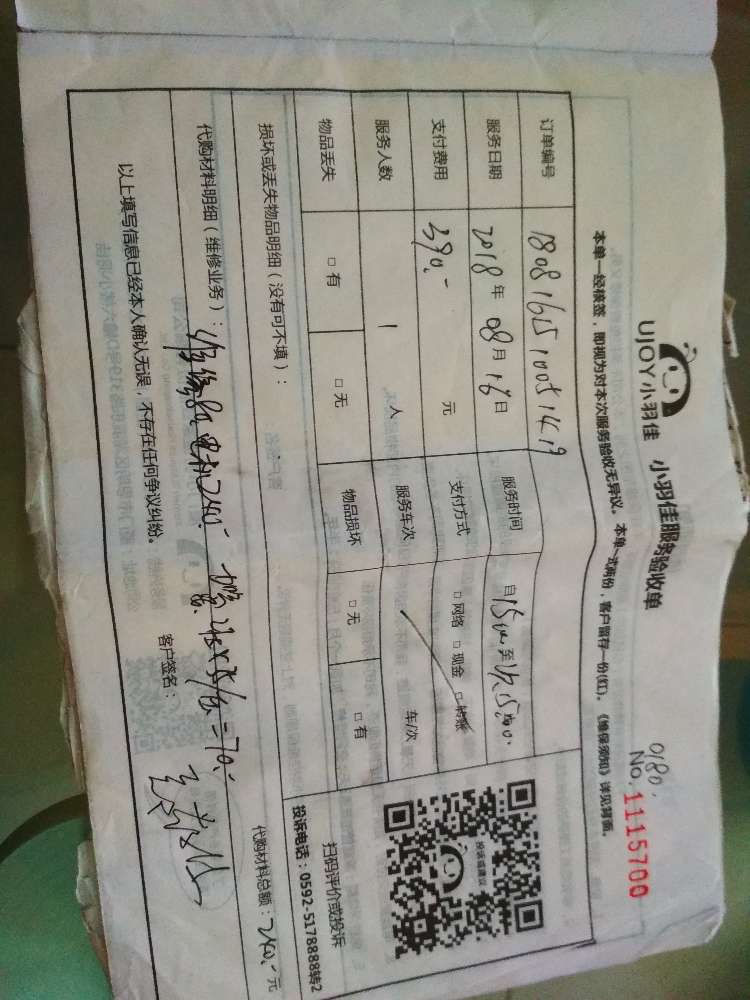 UJOY小羽佳 小羽佳服务验收单
0180.
No.1115700
本单一经核签，即视为对本次服务验收无异议。本单一式两份，客户留存一份(红)。《维保须知》详见背面。
订单编号 1808161510051419 服务时间 自15:00至
服务日期 2018年08月16日 支付方式 □网络 □现金 □转账
支付费用 390.- 元 服务车次 车/次
服务人数 1 人
物品丢失 □有 □无 物品损坏 □无 □有
扫码评价或投诉
投诉电话：0592-5178888转2
投诉或建议
损坏或丢失物品明细（没有可不填）：
代购材料明细（维修业务）： 240.- x35/台=70.-
代购材料总额：240.-元
以上填写信息已经本人确认无误，不存在任何争议纠纷。 客户签名：